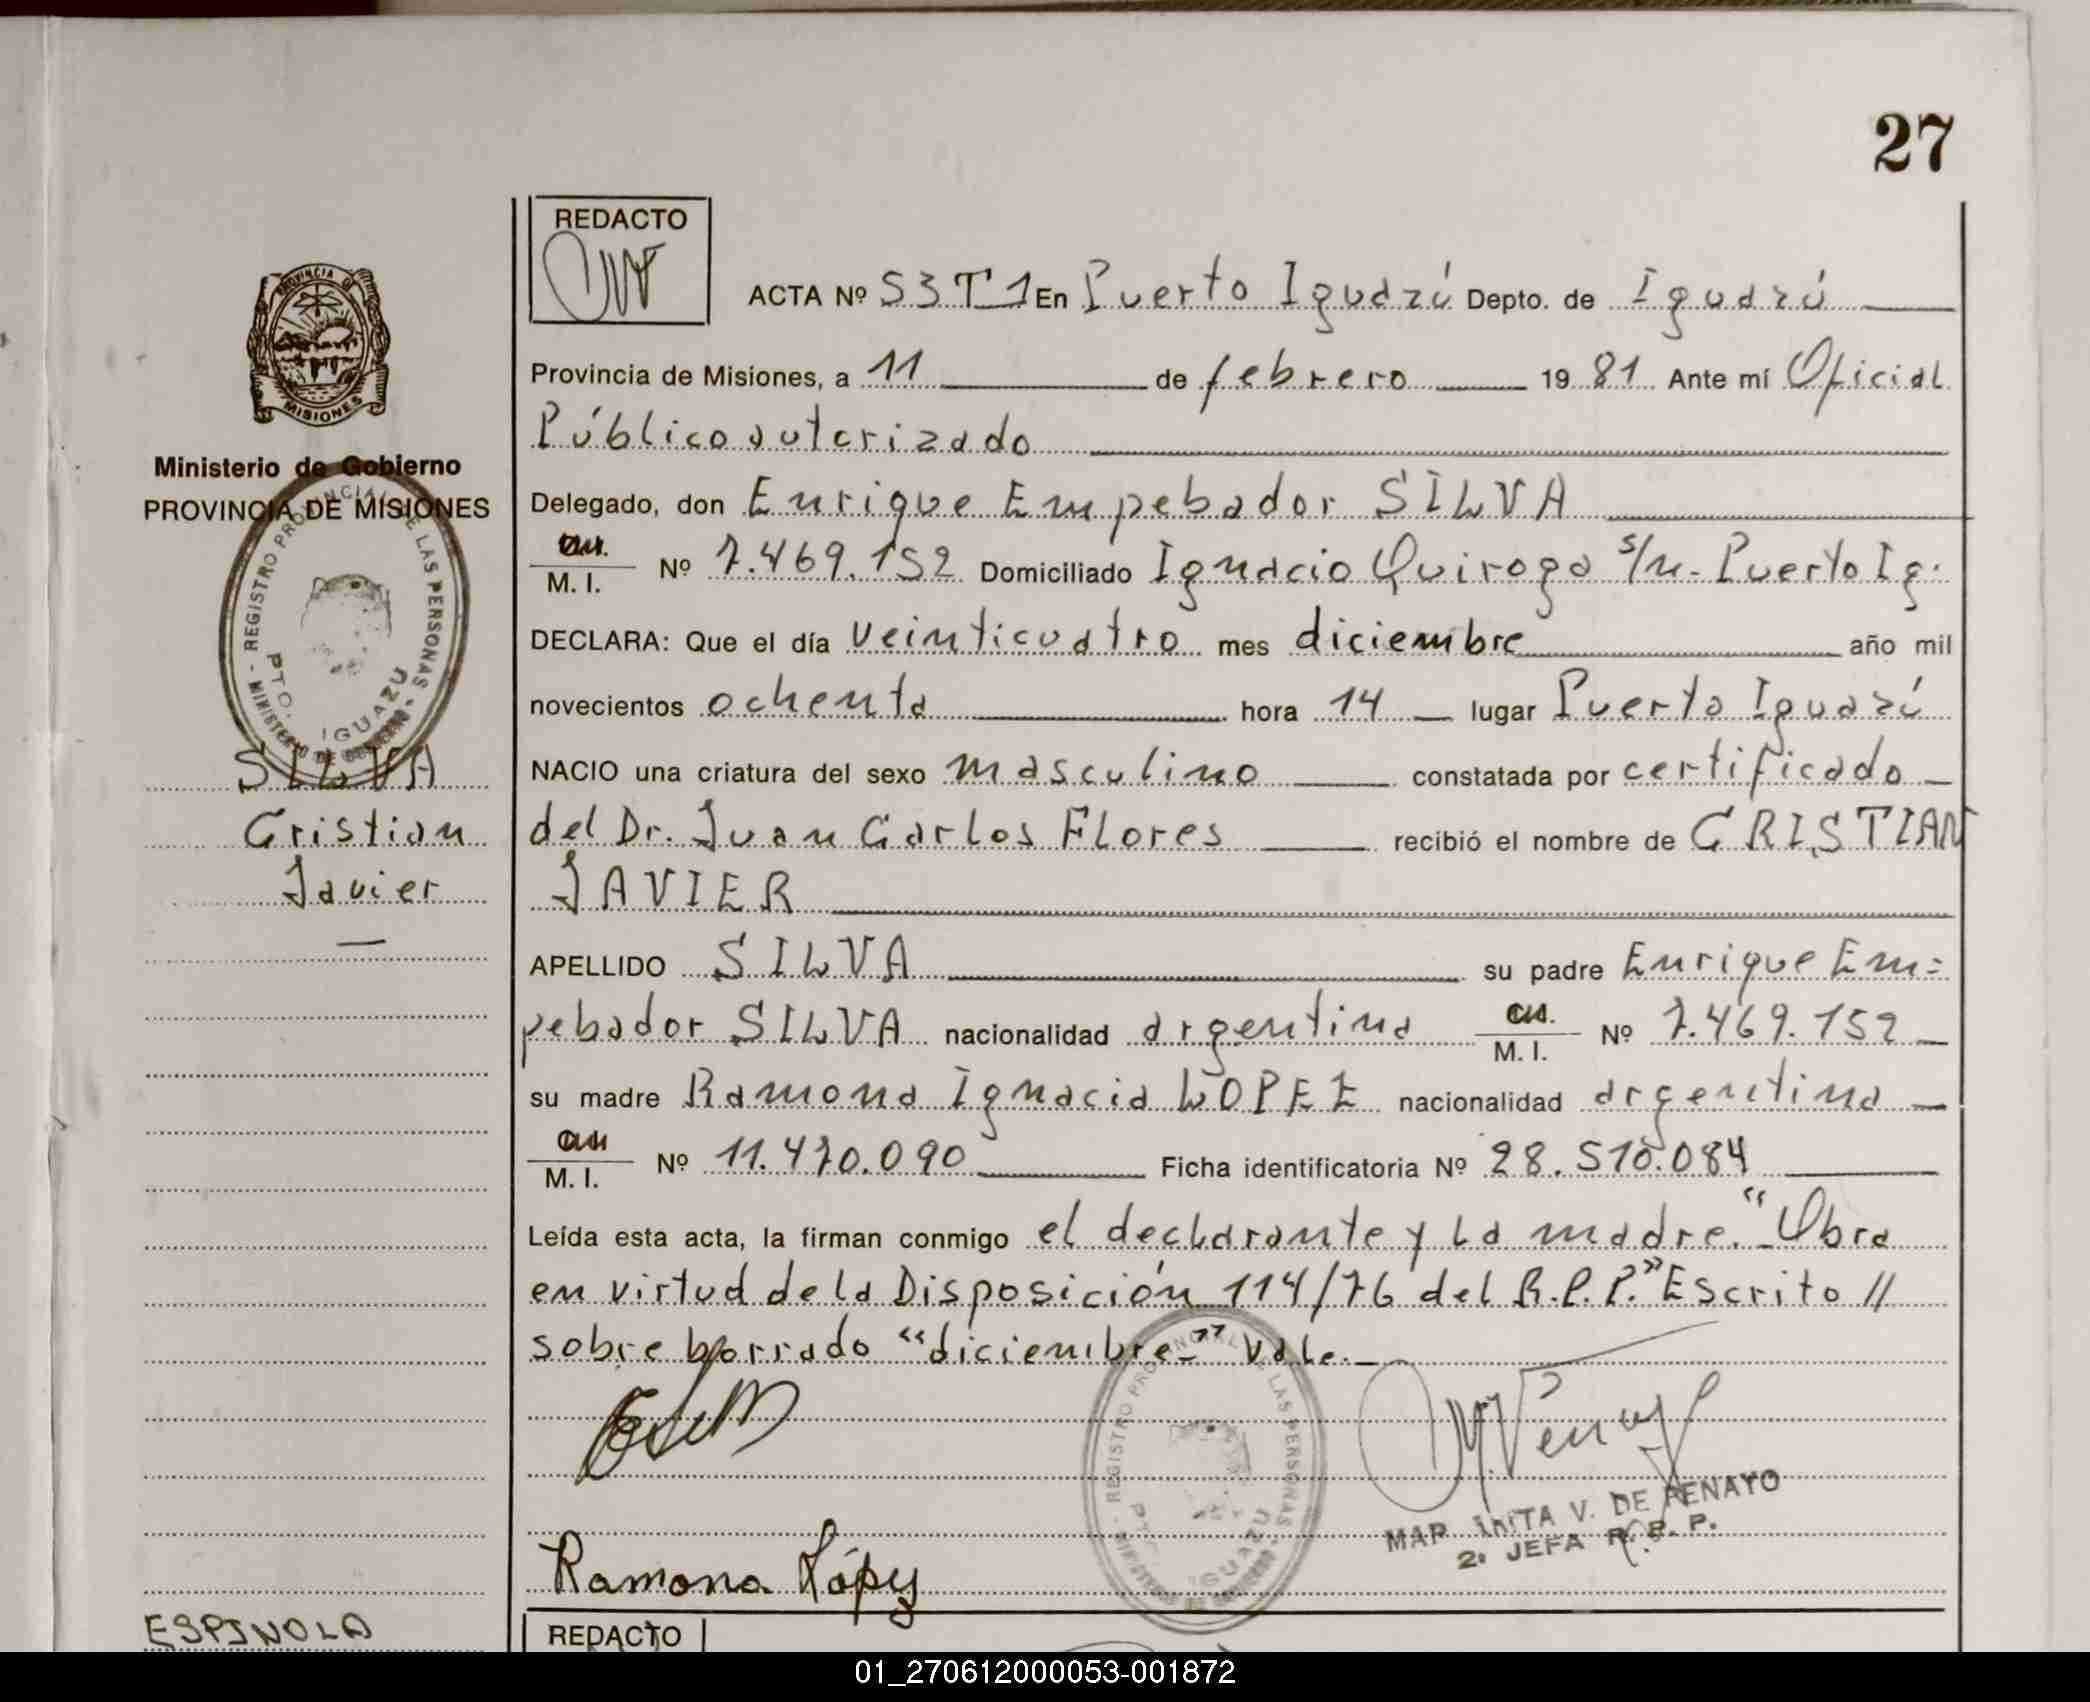 27
REDACTO
ACTA Nº 53 T 1 En Puerto Iguazú Depto. de Iguazú
Provincia de Misiones, a 11 de febrero 19 81 Ante mí Oficial
Público autorizado
Delegado, don Enrique Empebador SILVA
M. I. Nº 7.469.152 Domiciliado Ignacio Quiroga s/n.- Puerto Ig.
DECLARA: Que el día veinticuatro mes diciembre año mil
novecientos ochenta hora 14 lugar Puerto Iguazú
NACIO una criatura del sexo masculino constatada por certificado
del Dr. Juan Carlos Flores recibió el nombre de CRISTIAN
JAVIER
APELLIDO SILVA su padre Enrique Em=
pebador SILVA nacionalidad argentina M. I. Nº 7.469.152
su madre Ramona Ignacia LOPEZ nacionalidad argentina
M. I. Nº 11.470.090 Ficha identificatoria Nº 28.510.084
Leída esta acta, la firman conmigo el declarante y la madre. "Obra
en virtud de la Disposición 114/76 del R.P.P." Escrito //
sobre borrado "diciembre-" Vale.-
REGISTRO PROVINCIAL DE LAS PERSONAS
PTO. IGUAZU
V. DE PENAYO
2ª JEFA R. P. P.
Ramona López
REDACTO
PROVINCIA DE
MISIONES
Ministerio de Gobierno
PROVINCIA DE MISIONES
REGISTRO PROVINCIAL DE LAS PERSONAS
MINISTERIO DE GOBIERNO
PTO. IGUAZU
SILVA
Cristian
Javier
ESPINOLA
01_270612000053-001872